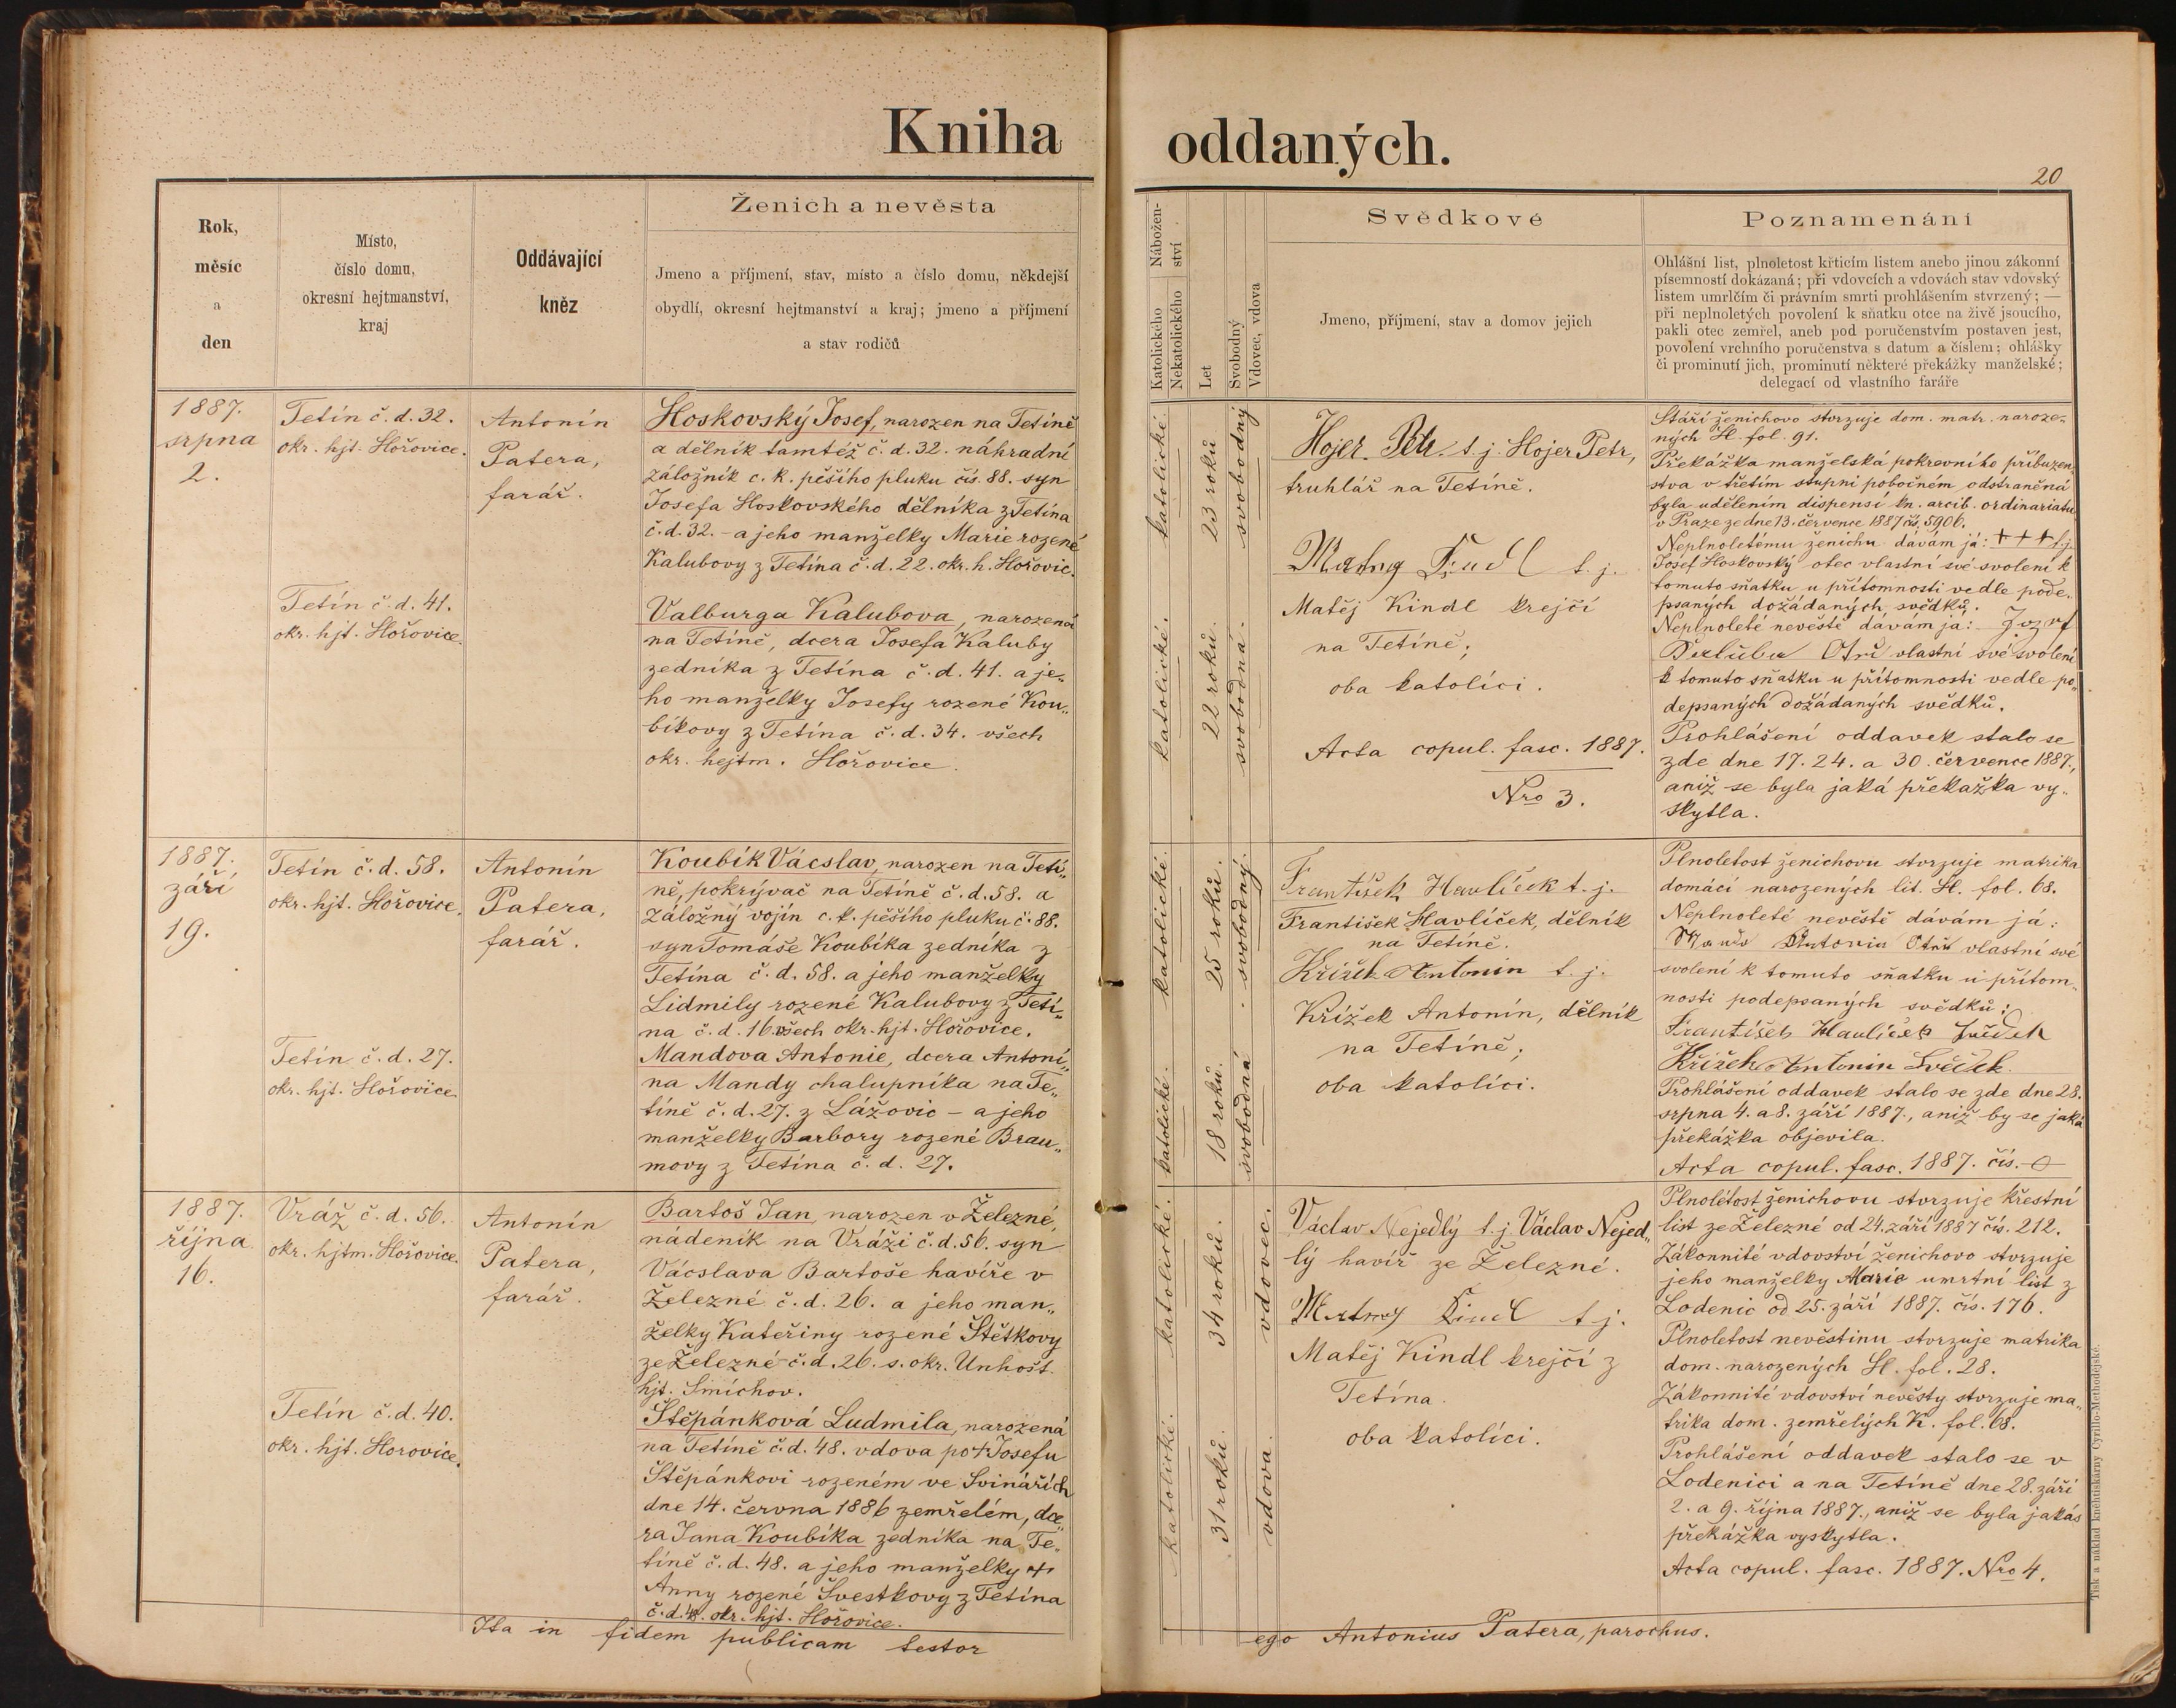 Kniha oddaných.
20
Rok,
měsíc
a
den
Místo,
číslo domu,
okresní hejtmanství,
kraj
Oddávající
kněz
Ženich a nevěsta
Jmeno a příjmení, stav, místo a číslo domu, někdejší
obydlí, okresní hejtmanství a kraj; jmeno a příjmení
a stav rodičů
Nábožen-
ství
Katolického
Nekatolického
Let
Svobodný
Vdovec, vdova
Svědkové
Jmeno, příjmení, stav a domov jejich
Poznamenání
Ohlášní list, plnoletost křticím listem anebo jinou zákonní
písemností dokázaná; při vdovcích a vdovách stav vdovský
listem umrlčím či právním smrti prohlášením stvrzený; —
při neplnoletých povolení k sňatku otce na živě jsoucího,
pakli otec zemřel, aneb pod poručenstvím postaven jest,
povolení vrchního poručenstva s datum a číslem; ohlášky
či prominutí jich, prominutí některé překážky manželské;
delegací od vlastního faráře
1887.
srpna
2.
Tetín č. d. 32.
okr. hjt. Hořovice.
Tetín č. d. 41.
okr. hjt. Hořovice.
Antonín
Patera,
farář.
Hoskovský Josef, narozen na Tetíně
a dělník tamtéž č. d. 32. náhradní
záložník c. k. pěšího pluku čís. 88. syn
Josefa Hoskovského dělníka z Tetína
č. d. 32. - a jeho manželky Marie rozené
Kalubovy z Tetína č. d. 22. okr. h. Hořovic.
Valburga Kalubova, narozená
na Tetíně, dcera Josefa Kaluby
zedníka z Tetína č. d. 41. a je„
ho manželky Josefy rozené Kou„
bíkovy z Tetína č. d. 34. všech
okr. hejtm. Hořovice.
katolické.
23 roků
svobodný
katolické.
22 roků.
svobodná.
Hojer Petr t. j. Hojer Petr,
truhlář na Tetíně.
Kindl t. j.
Matěj Kindl krejčí
na Tetíně;
oba katolíci.
Acta copul. fasc. 1887.
Nro 3.
Stáří ženichovo stvrzuje dom. matr. naroze-
ných H. fol. 91.
Překážka manželská pokrevního příbuzen„
stva v třetím stupni pobočném odstraněná
byla udělením dispensí kn. arcib. ordinariatu
v Praze ze dne 13. července 1887 čís. 5906.
Neplnoletému ženichu dávám já: + + + t. j.
Josef Hoskovský otec vlastní své svolení k
tomuto sňatku u přítomnosti vedle pode„
psaných dožádaných svědků.
Neplnoleté nevěstě dávám já: Jozef
Kaluba Otec vlastní své svolení
k tomuto sňatku u přítomnosti vedle po„
depsaných dožádaných svědků.
Prohlášení oddavek stalo se
zde dne 17. 24. a 30. července 1887.,
aniž se byla jaká překažka vy„
skytla.
1887.
září
19.
Tetín č. d. 58.
okr. hjt. Hořovice.
Tetín č. d. 27.
okr. hjt. Hořovice.
Antonín
Patera,
farář.
Koubík Vácslav, narozen na Tetí„
ně, pokrývač na Tetíně č. d. 58. a
záložný vojín c. k. pěšího pluku č. 88.
syn Tomáše Koubíka zedníka z
Tetína č. d. 58. a jeho manželky
Lidmily rozené Kalubovy z Tetí„
na č. d. 16. všech okr. hjt. Hořovice.
Mandova Antonie, dcera Antoní„
na Mandy chalupníka na Te„
tíně č. d. 27. z Lážovic - a jeho
manželky Barbory rozené Brau„
movy z Tetína č. d. 27.
katolické.
25 roků.
svobodný.
katolické.
18 roků.
svobodná
František Havlíček t. j.
František Havlíček, dělník
na Tetíně.
Křížek Antonin t. j.
Křížek Antonín, dělník
na Tetíně;
oba katolíci.
Plnoletost ženichovu stvrzuje matrika
domácí narozených lit. H. fol. 68.
Neplnoleté nevěstě dávám já:
Manda Antonin Otec vlastní své
svolení k tomuto sňatku u přítom„
nosti podepsaných svědků:
František Havlíček svědek
Křížek Antonin Svědek.
Prohlášení oddavek stalo se zde dne 28.
srpna 4. a 8. září 1887., aniž by se jaká
překážka objevila.
Acta copul. fasc. 1887. čís.
1887.
října
16.
Vráž č. d. 56.
okr. hjtm. Hořovice.
Tetín č. d. 40.
okr. hjt. Horovice.
Antonín
Patera,
farář.
Bartoš Jan, narozen v Železné,
nádeník na Vráži č. d. 56. syn
Vácslava Bartoše havíře v
Železné č. d. 26. a jeho man„
želky Kateřiny rozené Štětkovy
ze Železné č. d. 26. s. okr. Unhošt.
hjt. Smíchov.
Štěpánková Ludmila, narozená
na Tetíně č. d. 48. vdova po + Josefu
Štěpánkovi rozeném ve Svinářích
dne 14. června 1886 zemřelém, dce„
ra Jana Koubíka zedníka na Te„
tíně č. d. 48. a jeho manželky +
Anny rozené Švestkovy z Tetína
č. d. 48. okr. hjt. Hořovice.
katolické.
34 roků.
vdovec.
katolické.
31 roků.
vdova.
Václav Nejedlý t. j. Václav Nejed„
lý havíř ze Železné.
Kindl t. j.
Matěj Kindl krejčí z
Tetína.
oba katolíci.
Plnoletost ženichovu stvrzuje křestní
list ze Železné od 24. září 1887 čís. 212.
Zákonnité vdovství ženichovo stvrzuje
jeho manželky Marie umrtní list z
Lodenic od 25. září 1887. čís. 176.
Plnoletost nevěstinu stvrzuje matrika
dom. narozených H. fol. 28.
Zákonnité vdovství nevěsty stvrzuje ma„
trika dom. zemřelých K. fol. 68.
Prohlášení oddavek stalo se v
Lodenici a na Tetíně dne 28. září
2. a 9. října 1887., aniž se byla jakás
překážka vyskytla.
Acta copul. fasc. 1887. Nro 4.
Ita in fidem publicam testor ego Antonius Patera, parochus.
Tisk a náklad knihtiskárny Cyrillo-Methodějské.